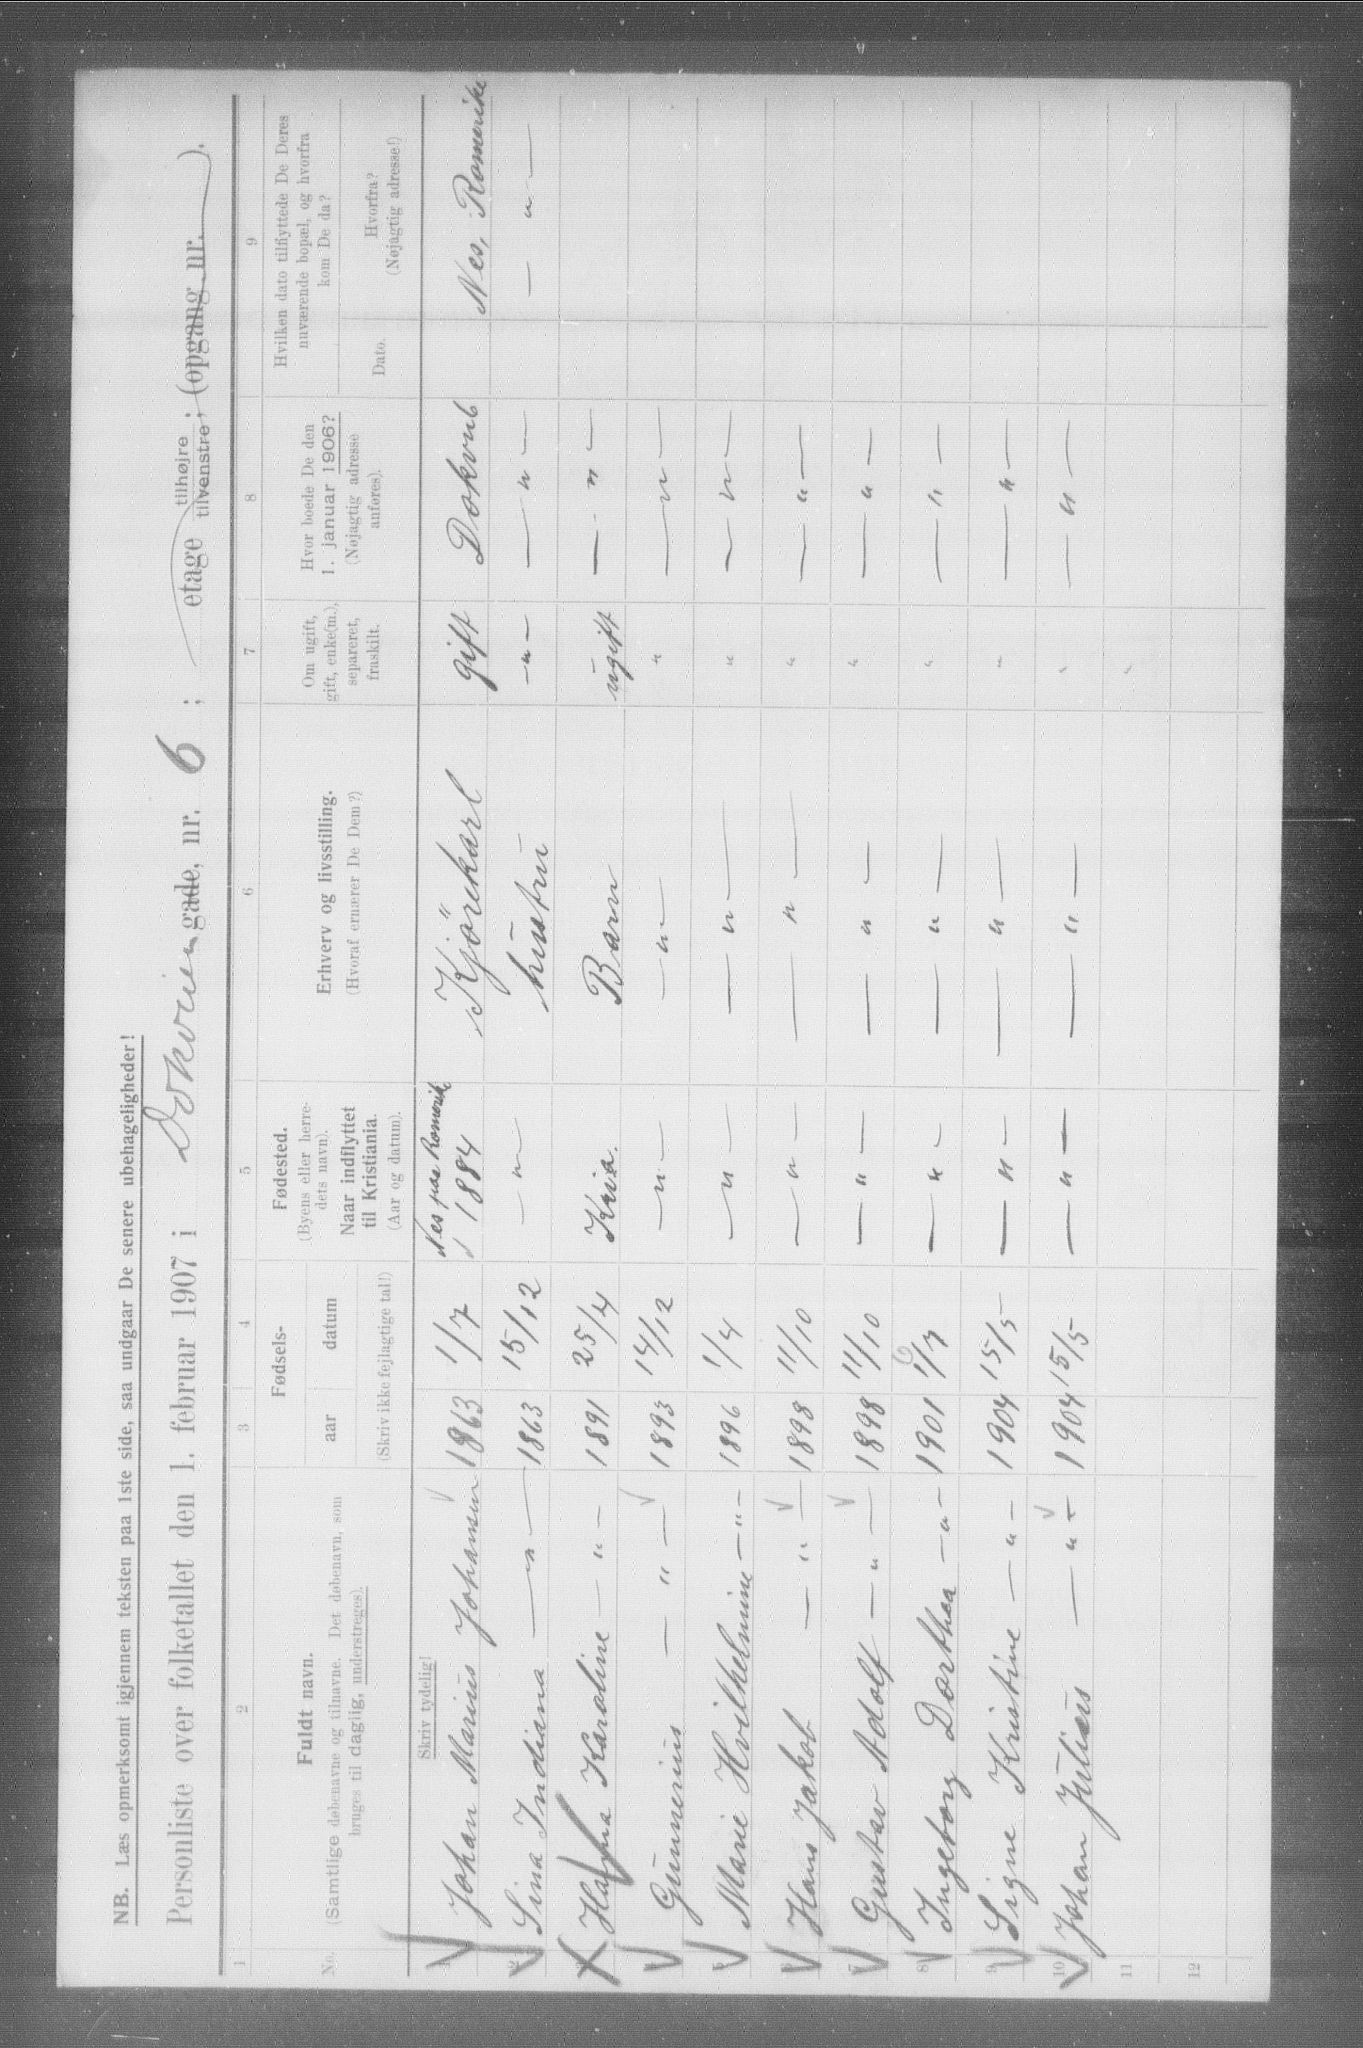 NB. Læs opmerksomt igjennem teksten paa 1ste side, saa undgaar De senere ubehageligheder!
Personliste over folketallet den 1. februar 1907 i Dokveien gade, nr. 6 ; etage tilhøjre tilvenstre ; (opgang nr. ).
1 2 3 4 5 6 7 8 9
No.
Fuldt navn.
(Samtlige døbenavne og tilnavne. Det døbenavn, som
bruges til daglig, understreges).
Fødsels-
aar datum
(Skriv ikke fejlagtige tal!)
Fødested.
(Byens eller herre-
dets navn).
Naar indflyttet
til Kristiania.
(Aar og datum).
Erhverv og livsstilling.
(Hvoraf ernærer De Dem?)
Om ugift,
gift, enke(m.),
separeret,
fraskilt.
Hvor boede De den
1. januar 1906?
(Nøjagtig adresse
anføres).
Hvilken dato tilflyttede De Deres
nuværende bopæl, og hvorfra
kom De da?
Dato.
Hvorfra?
(Nøjagtig adresse!)
Skriv tydelig!
1 Johan Marius Johansen 1863 1/7 Nes paa Romerike 1884 Kjörekarl gift Dokvn 6 Nes, Romerike
2 Lina Indiana — " — 1863 15/12 — " — hustru — " — — " — — " —
3 Karoline — " — 1891 25/4 Kria. Barn ugift — " —
Gunnerius — " — 1893 14/12 — " — — " — " — " —
Marie Hvilhelmine — " — 1896 1/4 — " — — " — " — " —
Hans Jakob — " — 1898 11/10 — " — — " — " — " —
7 Gustav Adolf — " — 1898 11/10 — " — — " — " — " —
8 Ingeborg Dorthea — " — 1901 1/7 — " — — " — " — " —
9 Signe Kristine — " — 1904 15/5 — " — — " — " — " —
10 Johan Julius — " — 1904 15/5 — " — — " — " — " —
11 "
12